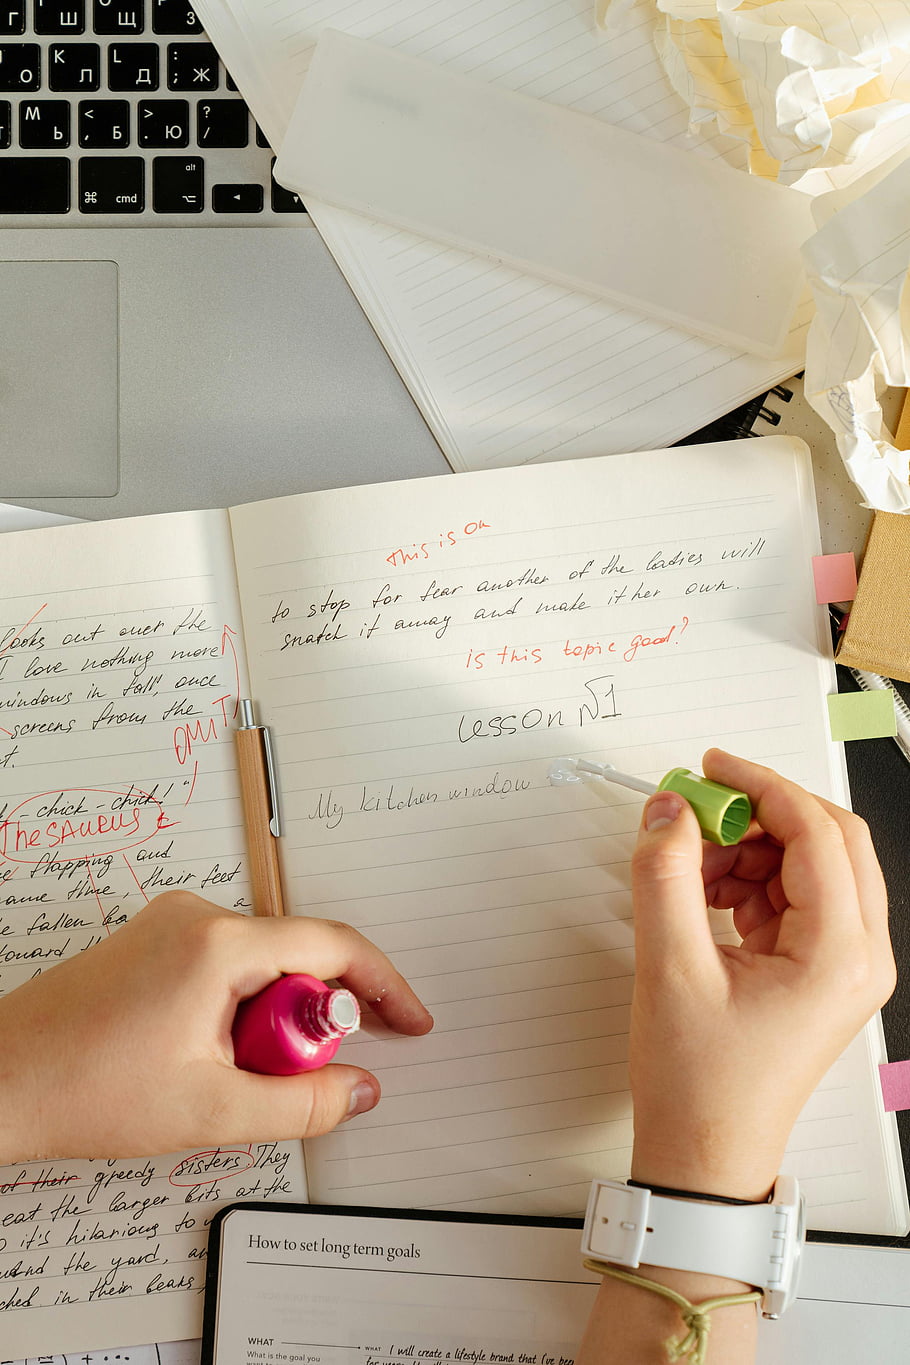 Г Ш Щ З
О K Л L Д : ; Ж
M Ь < , Б > . Ю ? /
⌘ cmd alt ⌥ ◄
▼
looks out over the
I love nothing more
windows in fall, once
screens from the
t.
OMIT
-chick-chick!"
TheSAURUS
flapping and
same time, their feet
a
fallen
toward
of their greedy sisters. They
eat the larger bits at the
it's hilarious to
and the yard,
in their beaks,
this is on
to stop for fear another of the ladies will
snatch it away and make it her own.
is this topic good?
Lesson №1
My kitchen window
How to set long term goals
WHAT
What is the goal you
WHAT I will create a lifestyle brand that I've been